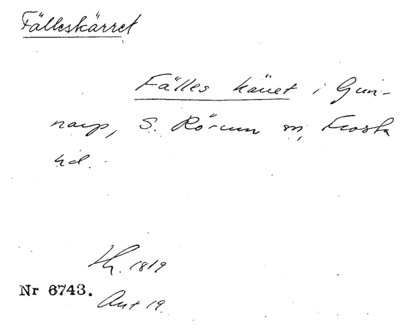 Fälleskärret
Fälles käuet i Gun-
narp, S. Rörum sn, Frosta
hd.
1819
Nr 6743.
Akt 19.